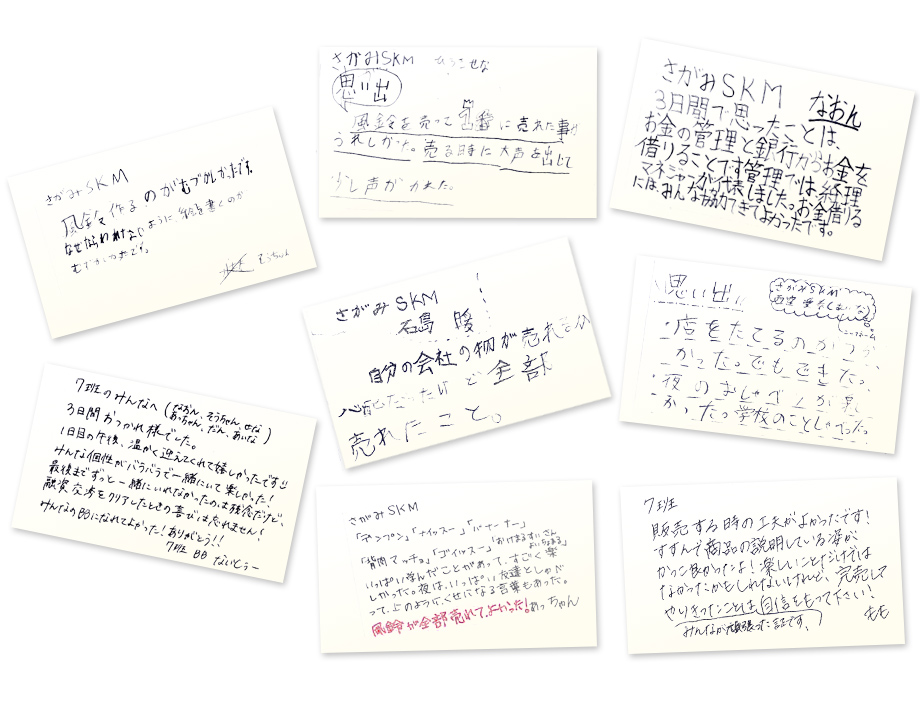 さがみSKM
風鈴作るのがむづかしかったです。
なぜならわれないように絵を書くのが
むずかしいです。
さがみSKM
思い出
風鈴を売って に売れた事が
うれしかった。売る時に大声を出して
少し声がかれた。
さがみSKM なおん
3日間で思ったことは、
お金の管理と銀行からお金を
借りることです管理では経理
マネジャーが代表しました。お金借りる
にはみんな協力できてよかったです。
さがみSKM
石島 暖
自分の会社の物が売れるか
心配だったけど全部
売れたこと。
思い出
さがみSKM
店をたてるのが
かった。でもできた。
夜のおしゃべりが楽し
かった。学校のことしゃべった。
7班のみんなへ(なおん、そうちゃん、せな
あっちゃん、だん、あいな)
3日間おつかれ様でした。
1日目の午後、温かく迎えてくれて嬉しかったです
みんな個性がバラバラで一緒にいて楽しかった!
最後までずっと一緒にいれなかったのは残念だけど、
融資交渉をクリアしたときの喜びは忘れません!
みんなのBBになれてよかった!ありがとう!!
7班 BB ないとぅー
さがみSKM
「テンプシ」「ナイスー」「バイーナー」
「背肉マッチョ」「ゴイゴスー」
いっぱい学んだことがあって、すごく楽
しかった。夜は、いっぱい友達としゃべ
って、上のようにくせになる言葉もあった。
風鈴が全部売れて、よかった!あっちゃん
7班
販売する時の工夫がよかったです!
すすんで商品の説明している姿が
かっこ良かったよ!楽しいことだけでは
なかったかもしれないけれど、完売して
やりきったことは自信をもって下さい!
みんなが頑張った証です。 もも